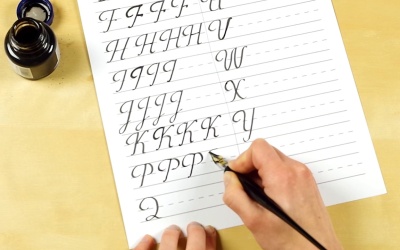 F F F F U
H H H H V
I I I I W
J J J J X
K K K K Y
P P P
Q